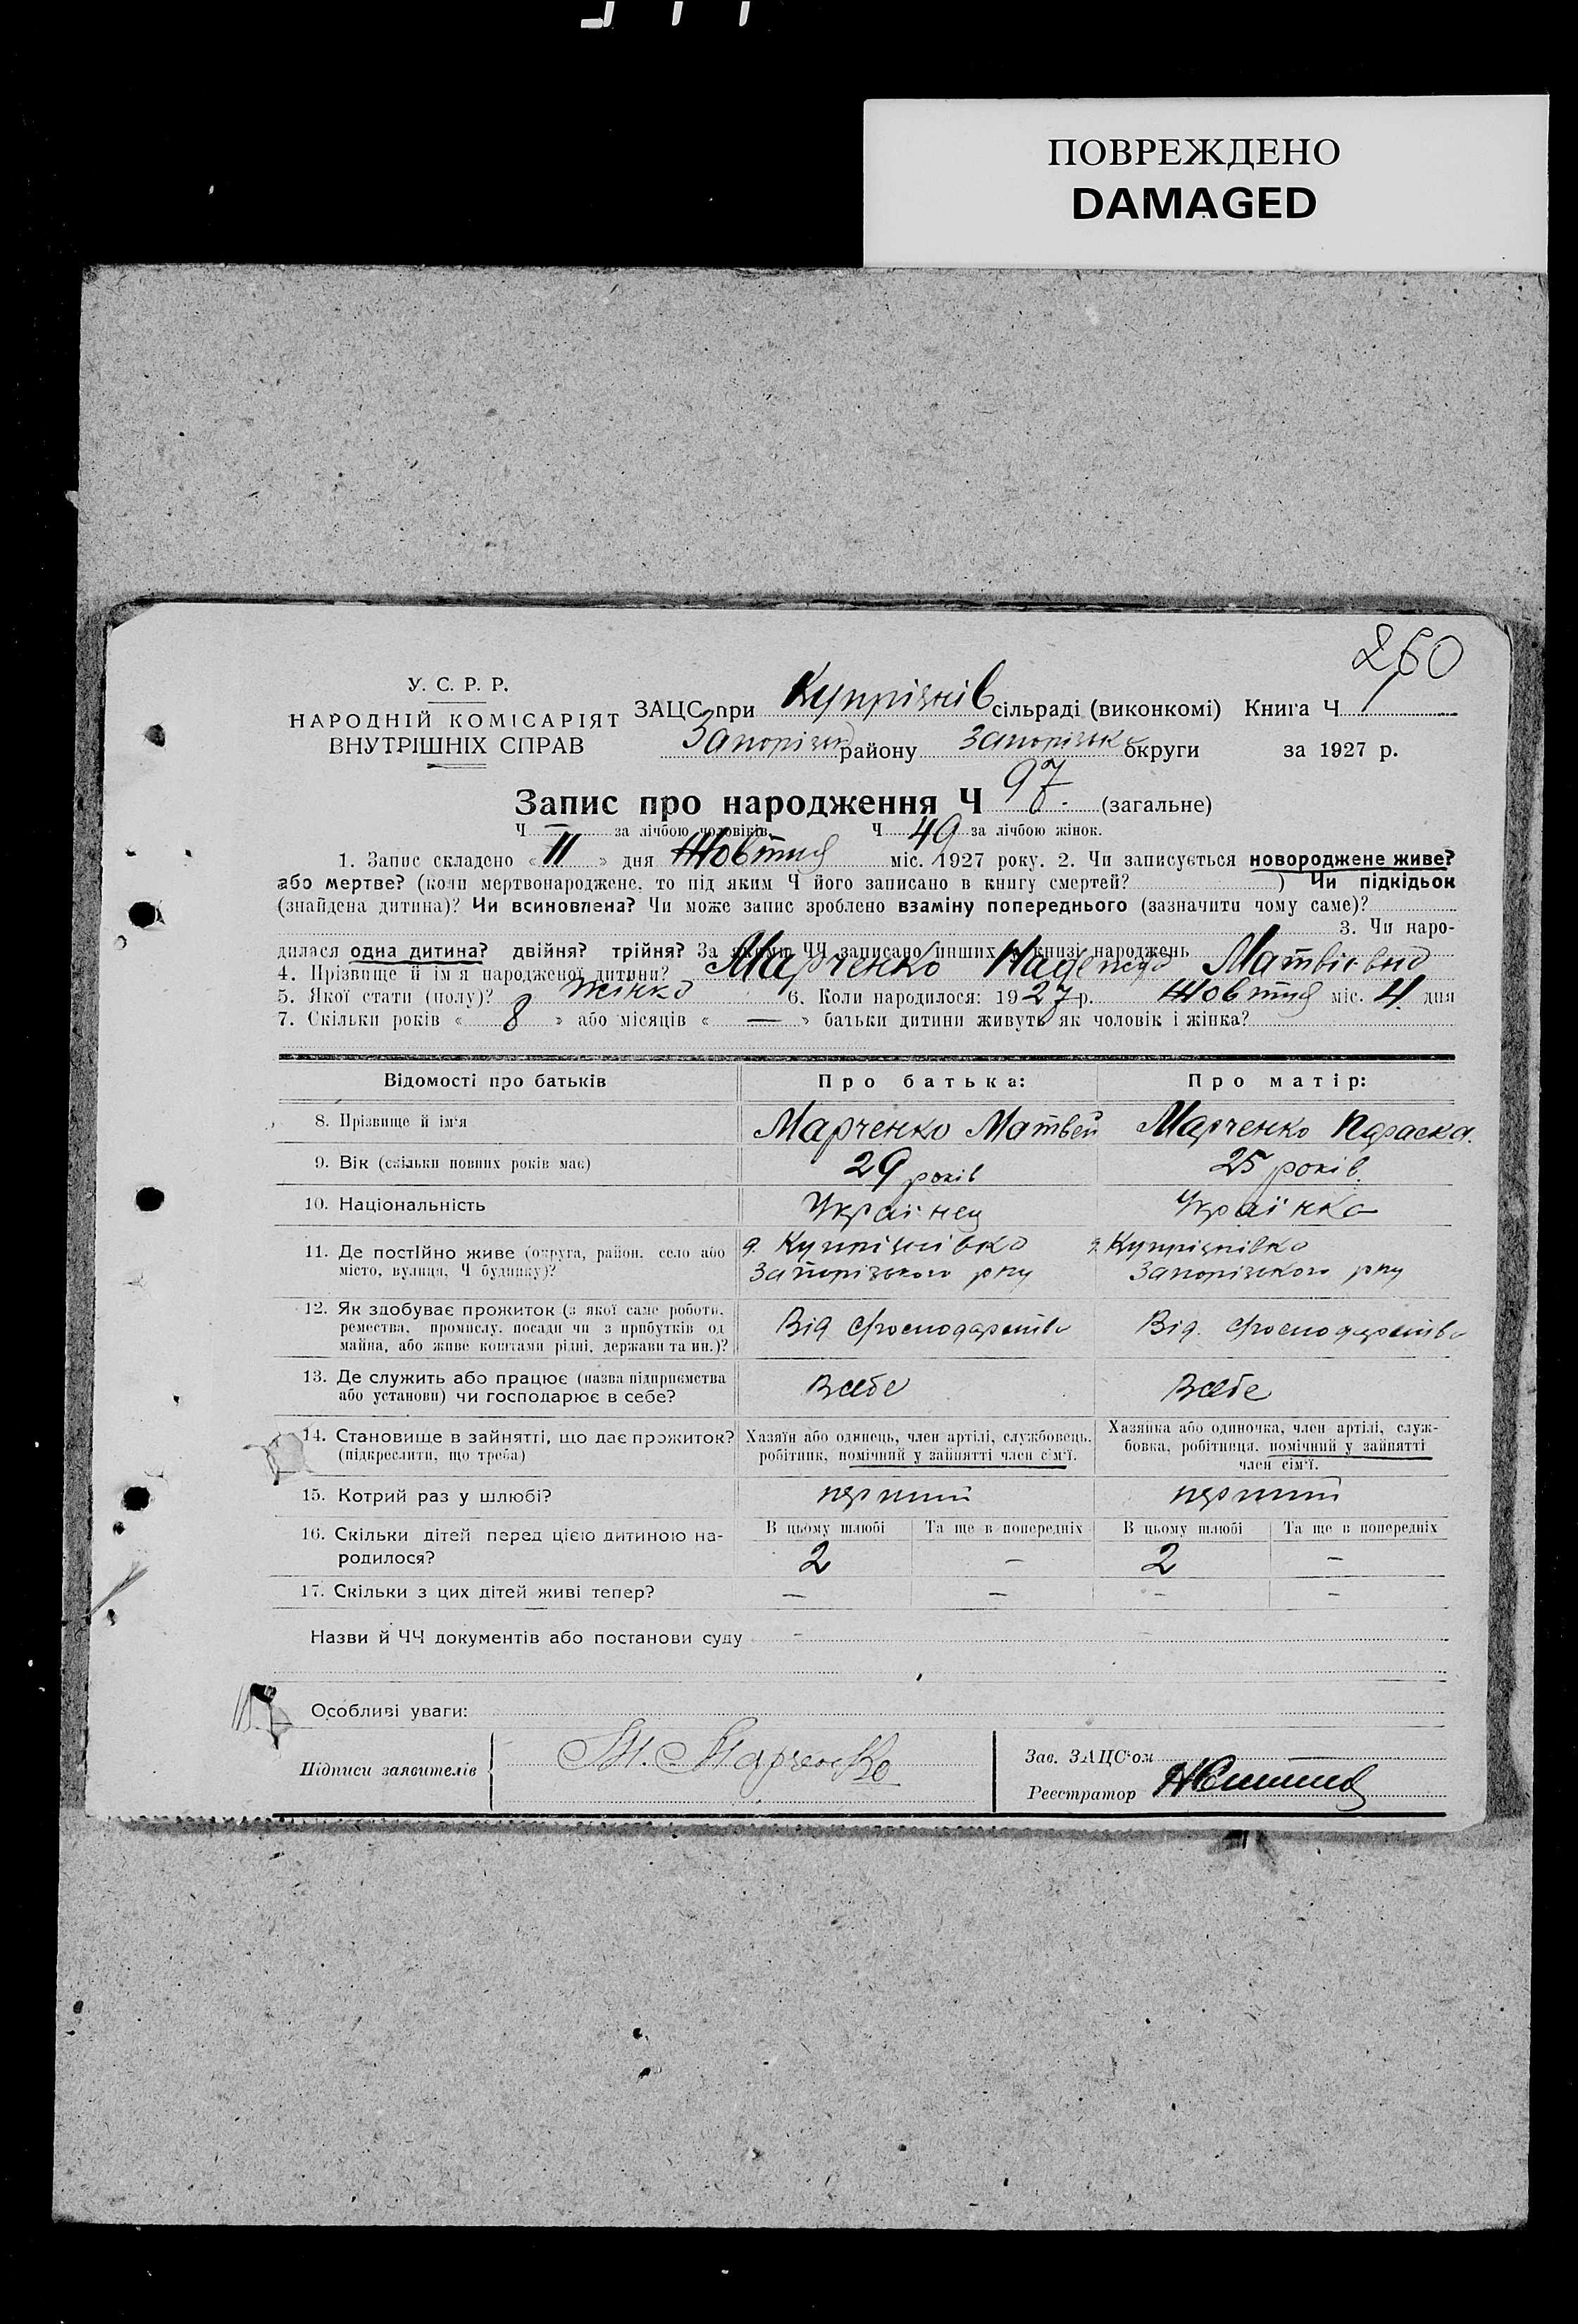 ПОВРЕЖДЕНО
DAMAGED
260
У. С. Р. Р.
НАРОДНІЙ КОМІСАРІЯТ
ВНУТРІШНІХ СПРАВ
ЗАЦС при Купріянів сільраді (виконкомі) Книга Ч 1
Запорізьк району Запорізько округи за 1927 р.
Запис про народження Ч 97. (загальне)
Ч — за лічбою чоловіків. Ч 49 за лічбою жінок.
1. Запис складено « 11 » дня Жовтня міс. 1927 року. 2. Чи записується новороджене живе?
або мертве? (коли мертвонароджене, то під яким Ч його записано в книгу смертей? ) Чи підкідьок
(знайдена дитина)? Чи всиновлена? Чи може запис зроблено взаміну попереднього (зазначити чому саме)?
3. Чи наро-
дилася одна дитина? двійня? трійня? За якими ЧЧ записано инших у книзі народжень
4. Прізвище й ім'я народженої дитини? Марченко Надежда Матвієвна
5. Якої стати (полу)? жінка 6. Коли народилося: 1927 р. Жовтня міс. 4. дня
7. Скільки років « 8 » або місяців « — » батьки дитини живуть як чоловік і жінка?
Відомості про батьків Про батька: Про матір:
8. Прізвище й ім'я Марченко Матвей Марченко Параска.
9. Вік (скільки повних років має) 29 років 25 років.
10. Національність Українец Українка
11. Де постійно живе (округа, район, село або
місто, вулиця, Ч будинку)?
Купріянівка
Запорізького рну
Купріянівка
Запорізького рну
12. Як здобуває прожиток (з якої саме роботи,
ремества, промислу, посади чи з прибутків од
майна, або живе коштами рідні, держави та ин.)?
Від господарства Від. господарства
13. Де служить або працює (назва підприємства
або установи) чи господарює в себе?
Всебе Всебе
14. Становище в зайнятті, що дає прожиток?
(підкреслити, що треба)
Хазяїн або одинець, член артілі, службовець,
робітник, помічний у зайнятті член сім'ї.
Хазяйка або одиночка, член артілі, служ-
бовка, робітниця, помічний у зайнятті
член сім'ї.
15. Котрий раз у шлюбі? перший перший
16. Скільки дітей перед цією дитиною на-
родилося?
В цьому шлюбі Та ще в попередніх В цьому шлюбі Та ще в попередніх
2 — 2 —
17. Скільки з цих дітей живі тепер? — — — —
Назви й ЧЧ документів або постанови суду —
Особливі уваги:
Підписи заявителів М. Марченко
Зав. ЗАЦС'ом —
Реєстратор